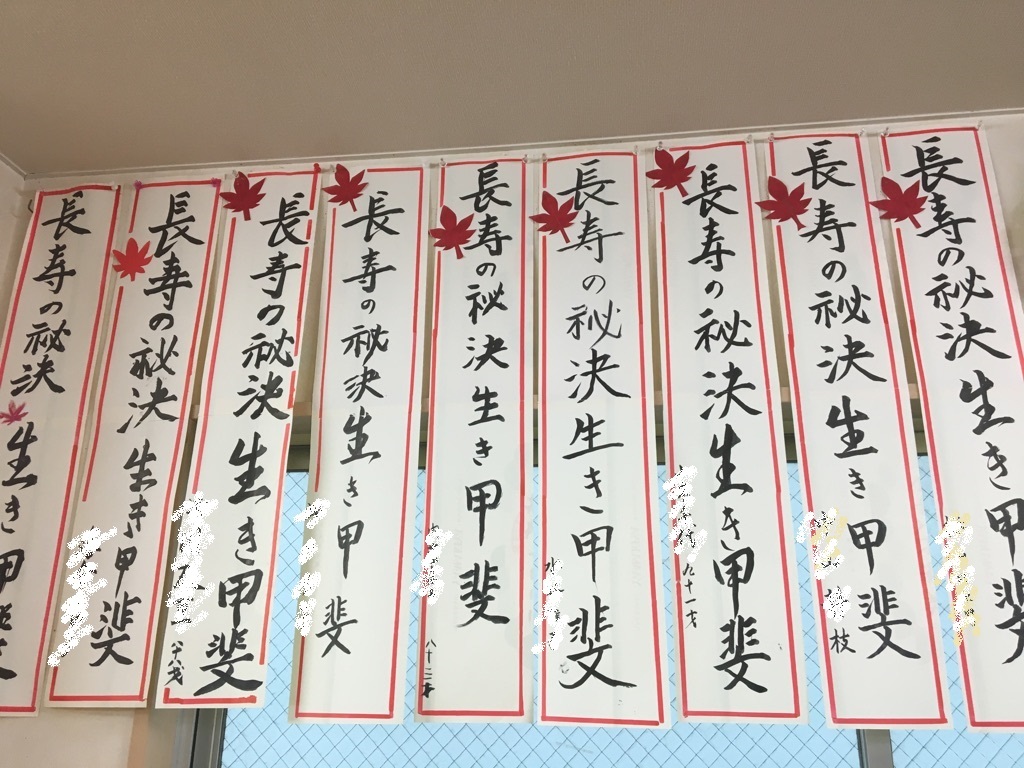 長寿の秘決生き甲斐
長寿の秘決生き甲斐
枝
長寿の秘決生き甲斐
九十一才
長寿の秘決生き甲斐
水
長寿の秘決生き甲斐
八十三才
長寿の秘決生き甲斐
長寿の秘決生き甲斐
長寿の秘決生き甲斐
長寿の秘決生き甲斐